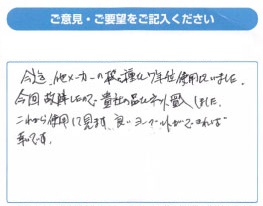 ご意見・ご要望をご記入ください
今迄、他メーカーの 種を7年位使用していました。
今回故障したので貴社の品をネット購入しました。
これから使用して見ます。良いヨーグルトができれば
幸です。